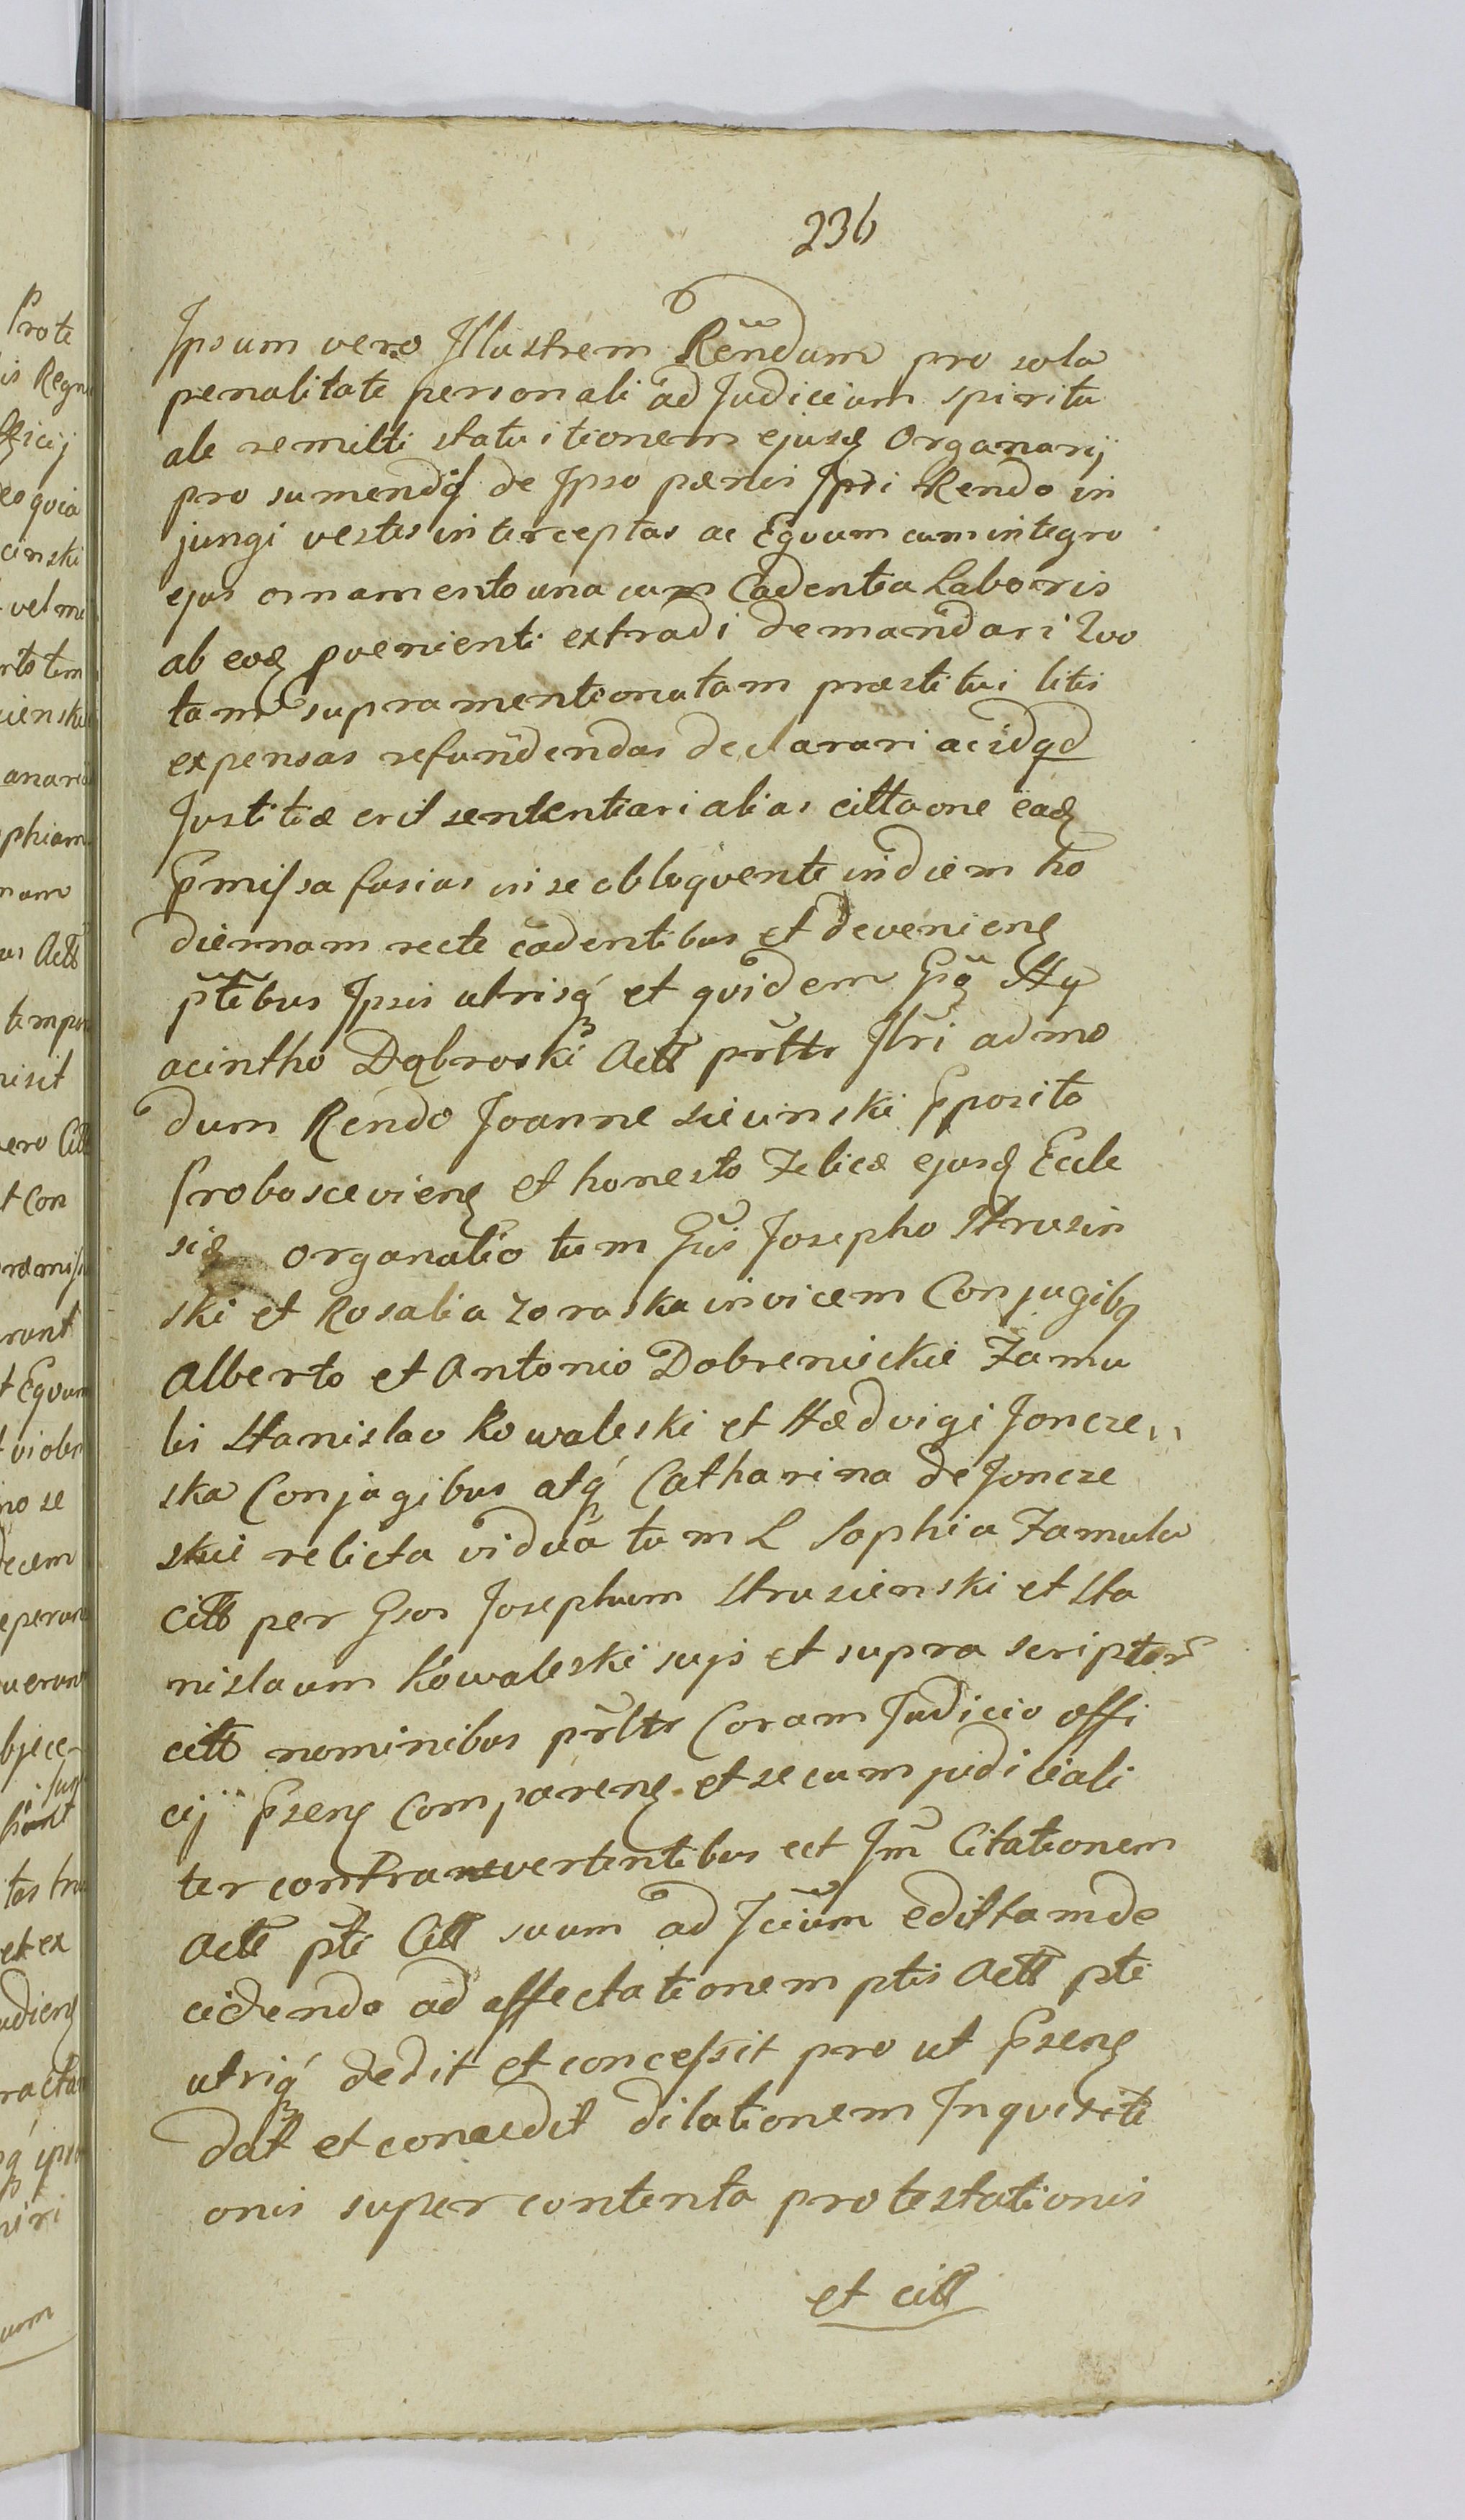 236
Ipsum vero Illustrem Rendum pro sola
penalitate personali ad Judicium spiritu
ale remitti statuitionem ejusd Organarij
pro sumendis de Ipso pænis Ipsi Rendo in
jungi vestes interceptas ac Equum cum integro
ejus ornamento una cum Cadentia Laboris
ab eod provenienti extradi demandari Quo
tam supramentionatam præstitui litis
expensas refundendas declarari ac idqd
Justitiæ erit sententiari alias cittaone ead
Pmissa fusius in se obloquente in diem ho
diernam recte cadentibus et devenieng
ptibus Ipsis utrisq et quidem Gsg Hy
acintho Dąbroski Actt prltr Iltri admo
dum Rendo Joanne Siecinski Pposito
Proboscevieng et honesto Felice ejusd Eccle
siæ organatio tum Gsis Josepho Strusin
ski et Rosalia Zoraska invicem Conjugibq
Alberto et Antonio Dobrenieckie Famu
lis Stanislao Kowaleski et Hædvigi Joncze,,
ska Conjugibus atq Catharina de Joncze
skie relicta vidua tum L Sophia Famula
citt per Gsos Josephum Strusienski et Sta
nislaum Kowaleski suis et supra scriptor
citt nominibus prltr Coram Judicio offi
cij Pseng Compareng et se cum judiciali
ter contravertentibus ect Im Citationem
Actt pti Citt suum ad Jcium edittam de
cidendo ad affectationem ptis Actt pti
utriq dedit et concessit pro ut Pseng
dat et concedit dilationem Inquisiti
onis super contenta protestationis
et citt